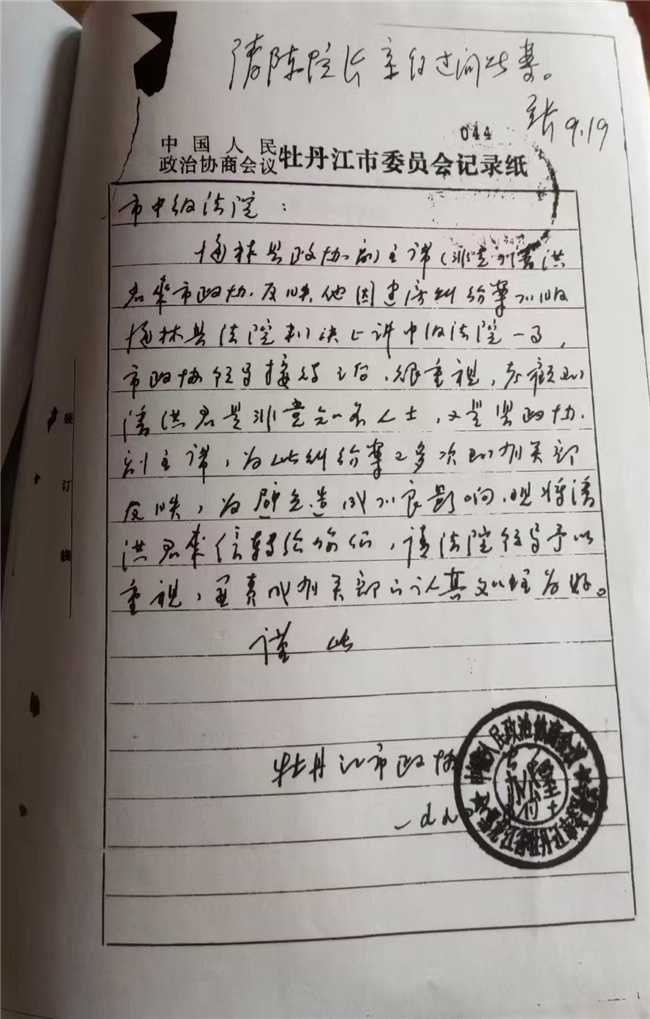 请陈院长亲自过问此案。
张 9.19
044
中国人民
政治协商会议牡丹江市委员会记录纸
市中级法院：
海林县政协副主席（非党）潘洪
君来市政协反映，他因建房纠纷案不服
海林县法院判决上诉中级法院一事，
市政协领导接待之后，很重视，考虑到
潘洪君是非党知名人士，又是县政协
副主席，为此纠纷案已多次到有关部
反映，为避免造成不良影响，现将潘
洪君来信转给你们，请法院领导予以
重视，并责成有关部门认真处理为好。
谨此
牡丹江市政协
装订线